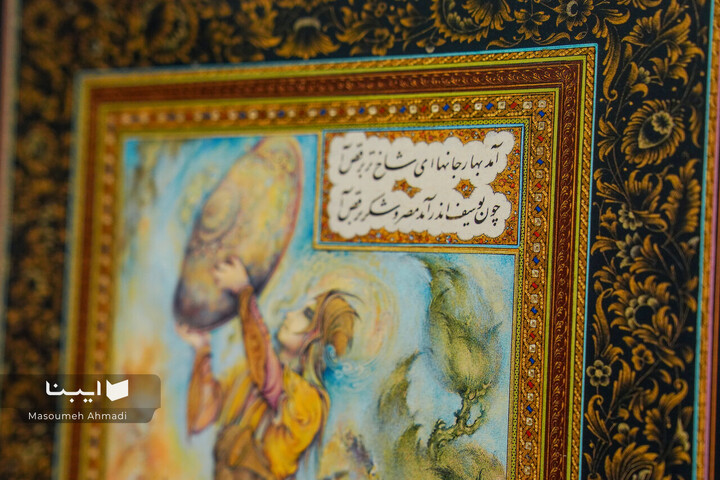 آمد بهار جانها ای شاخ تر برقص آ
چون یوسف اندر آمد مصر و شکر برقص آ
ایبنا
Masoumeh Ahmadi